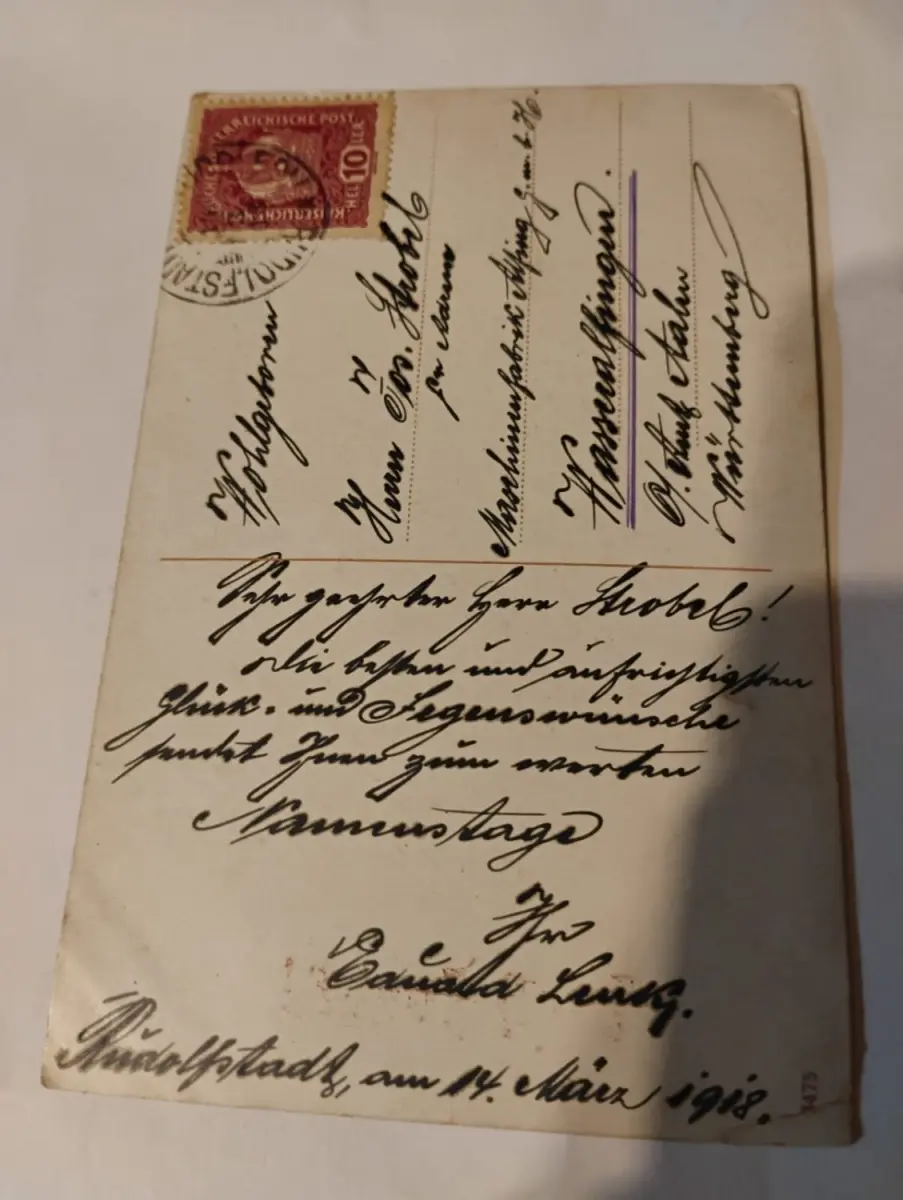 KAISERLICHE KÖNIGLICHE ÖSTERREICHISCHE POST
10 HELLER
RUDOLFSTADT
Wohlgeboren
Herrn Jos. Strobel
Maschinenfabrik Alfing G.m.b.H.
Wasseralfingen.
O. Amt Aalen
Württemberg
Sehr geehrter Herr Strobel!
Die besten und aufrichtigsten
Glück- und Segenswünsche
sendet Ihnen zum werten
Namenstage
Ihr
Eduard Lenk.
Rudolfstadt, am 14. März 1918.